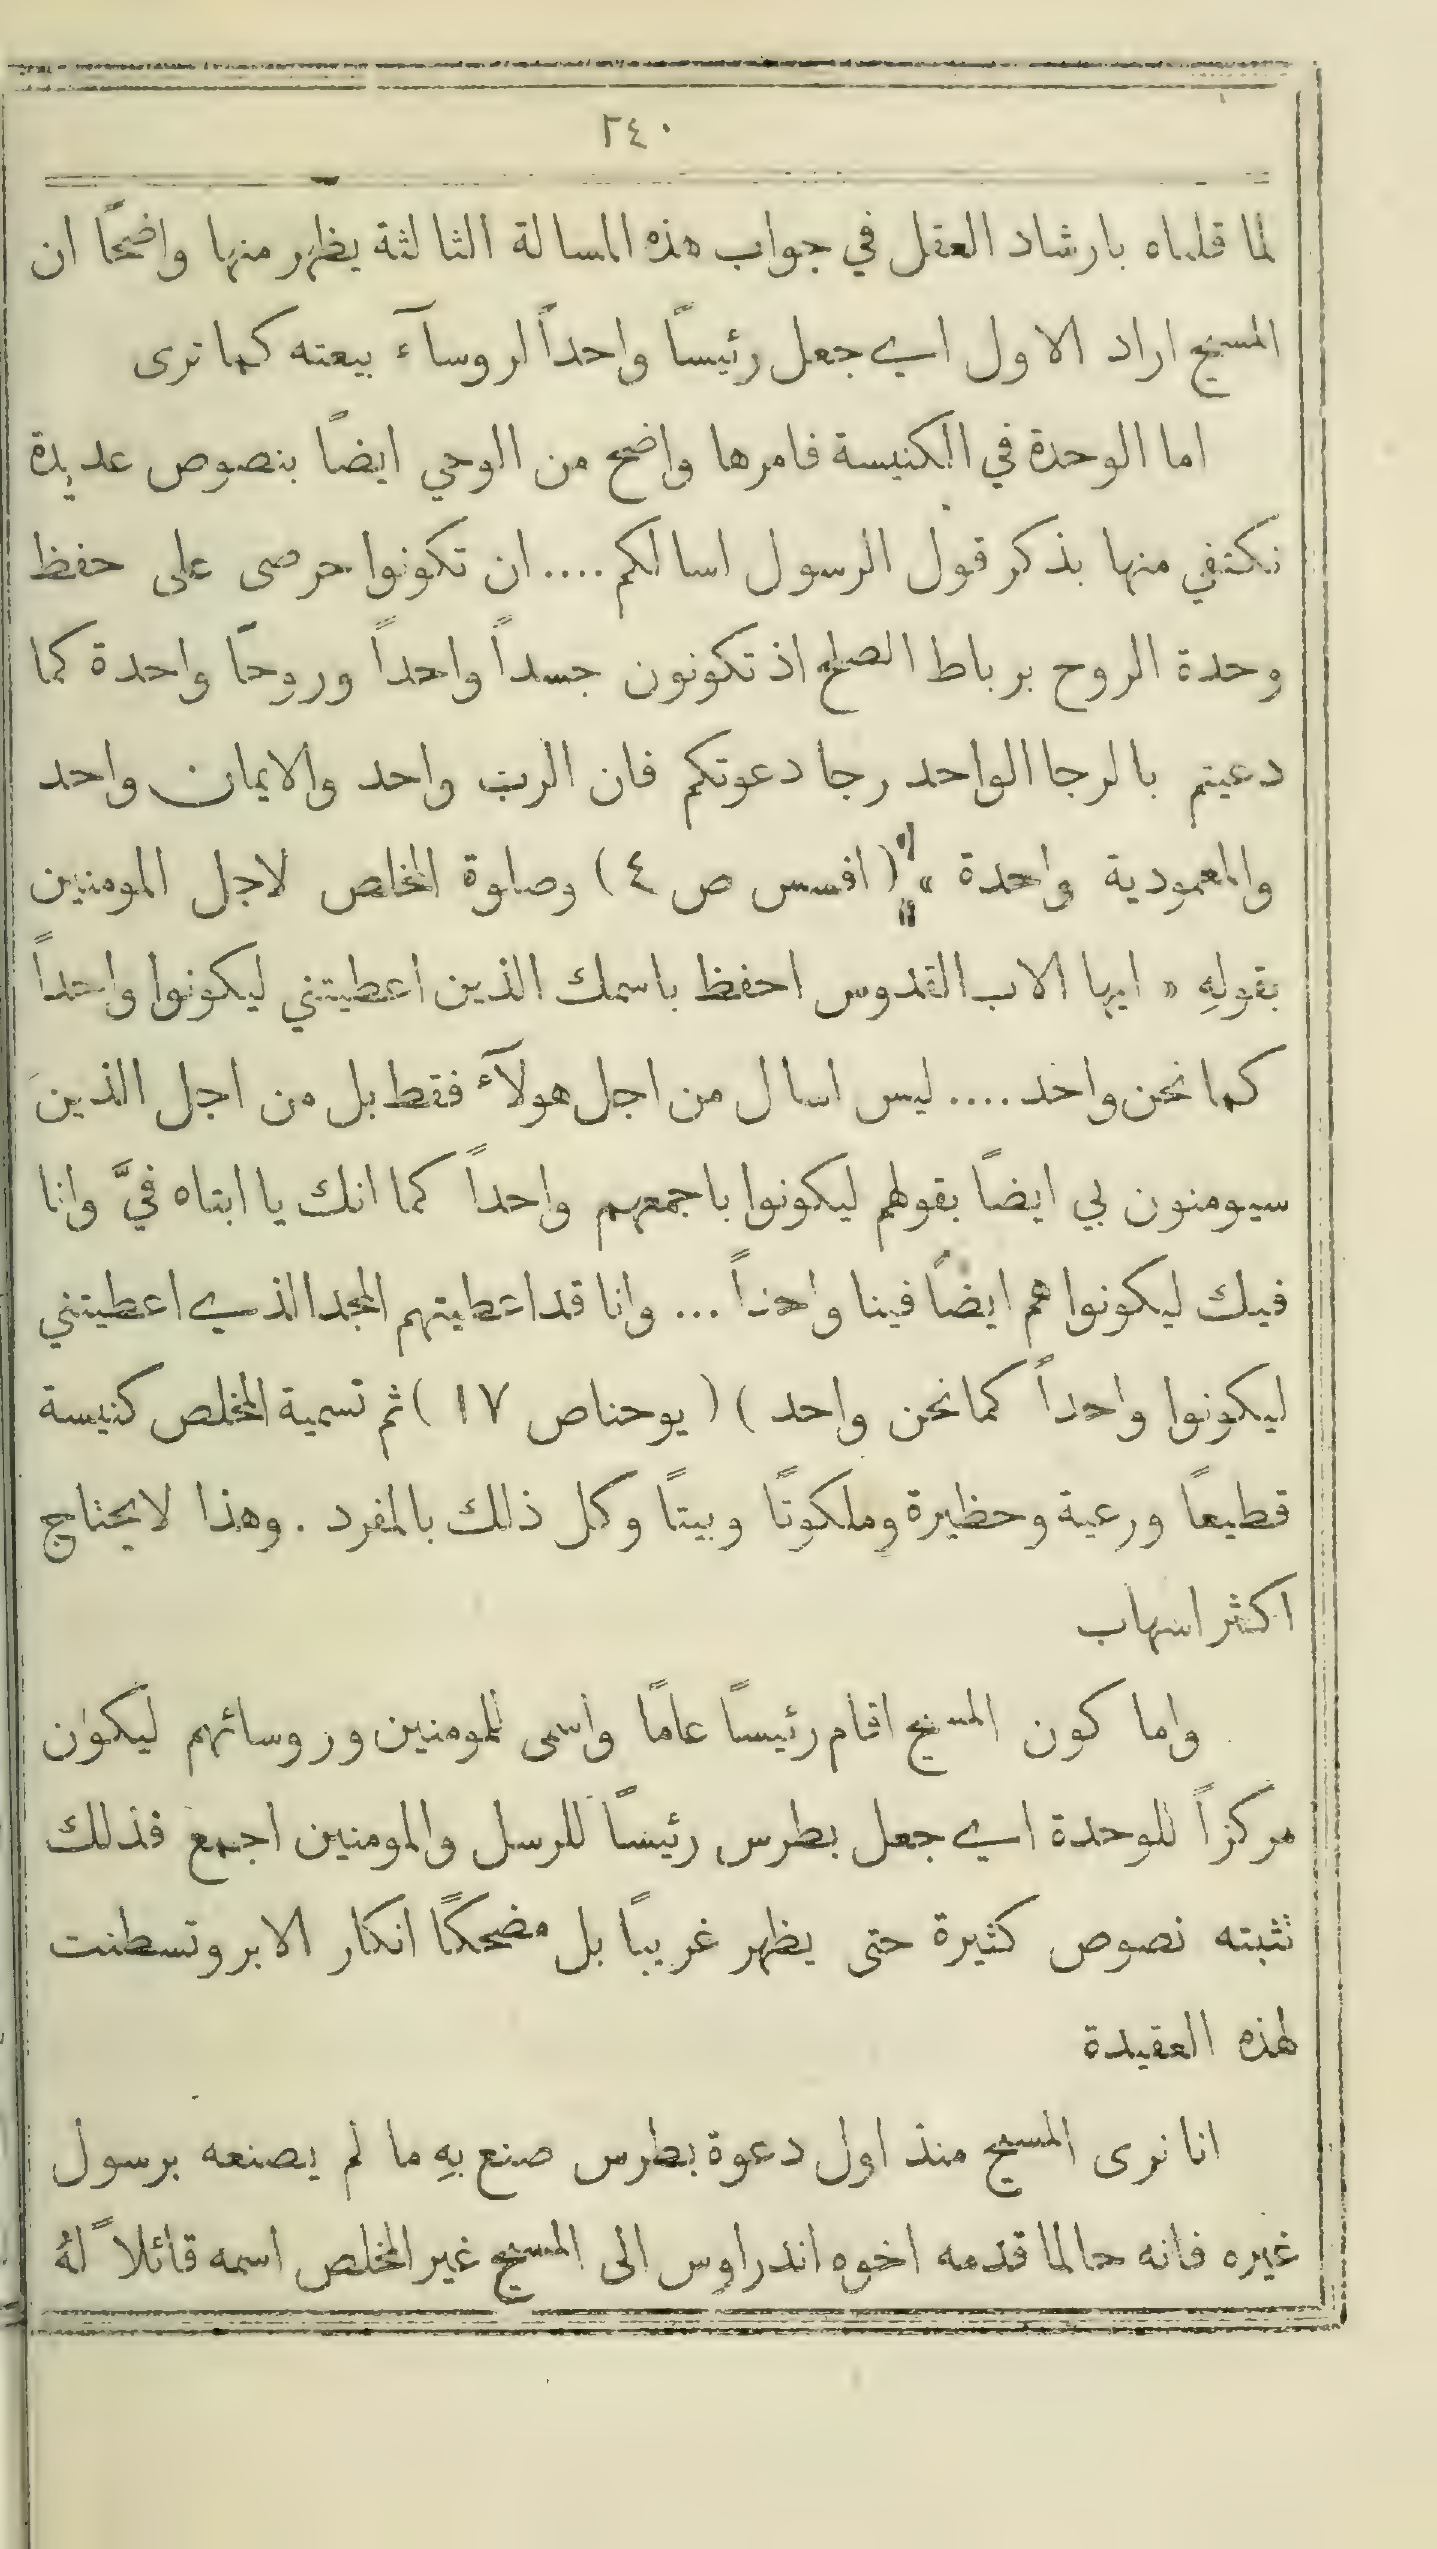 ٢٤٠
لما قلناه بارشاد العقل في جواب هذه المسالة الثالثة يظهر منها واضحًا ان
المسيح اراد الاول اي جعل رئيسًا واحداً لروسآء بيعته كما ترى
اما الوحدة في الكنيسة فامرها واضح من الوحي ايضًا بنصوص عديدة
نكتفي منها بذكر قول الرسول اسالكم .... ان تكونوا حرصى على حفظ
وحدة الروح برباط الصلح اذ تكونون جسداً واحداً وروحًا واحدة كما
دعيتم بالرجا الواحد رجا دعوتكم فان الرب واحد والايمان واحد
والمعمودية واحدة » ( افسس ص ٤ ) وصلوة المخلص لاجل المومنين
بقولهِ « ايها الاب القدوس احفظ باسمك الذين اعطيتني ليكونوا واحداً
كما نحن واحد .... ليس اسال من اجل هولآء فقط بل من اجل الذين
سيومنون بي ايضًا بقولهم ليكونوا باجمعهم واحداً كما انك يا ابتاه فيَّ وانا
فيك ليكونوا هم ايضًا فينا واحداً ... وانا قد اعطيتهم المجد الذي اعطيتني
ليكونوا واحداً كما نحن واحد ) ( يوحنا ص ١٧ ) ثم تسمية المخلص كنيسة
قطيعًا ورعية وحظيرة وملكوتًا وبيتًا وكل ذلك بالمفرد . وهذا لا يحتاج
اكثر اسهاب
واما كون المسيح اقام رئيسًا عامًا واسمى للمومنين وروسائهم ليكون
مركزاً للوحدة اي جعل بطرس رئيسًا للرسل والمومنين اجمع فذلك
تثبته نصوص كثيرة حتى يظهر غريبًا بل مضحكًا انكار الابروتسطنت
لهذه العقيدة
انا نرى المسيح منذ اول دعوة بطرس صنع بهِ ما لم يصنعه برسول
غيره فانه حالما قدمه اخوه اندراوس الى المسيح غير المخلص اسمه قائلاً لهُ